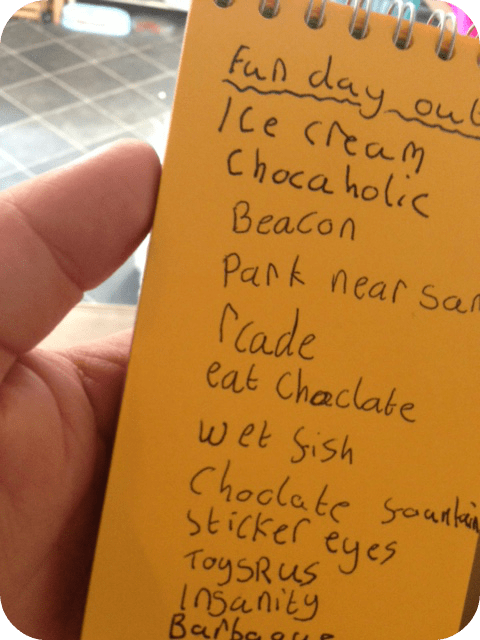 Fun day out
Ice cream
Chocaholic
Beacon
Park near san
rcade
eat Choclate
wet fish
Choclate fountain
sticker eyes
ToysRus
Insanity
Barbaque